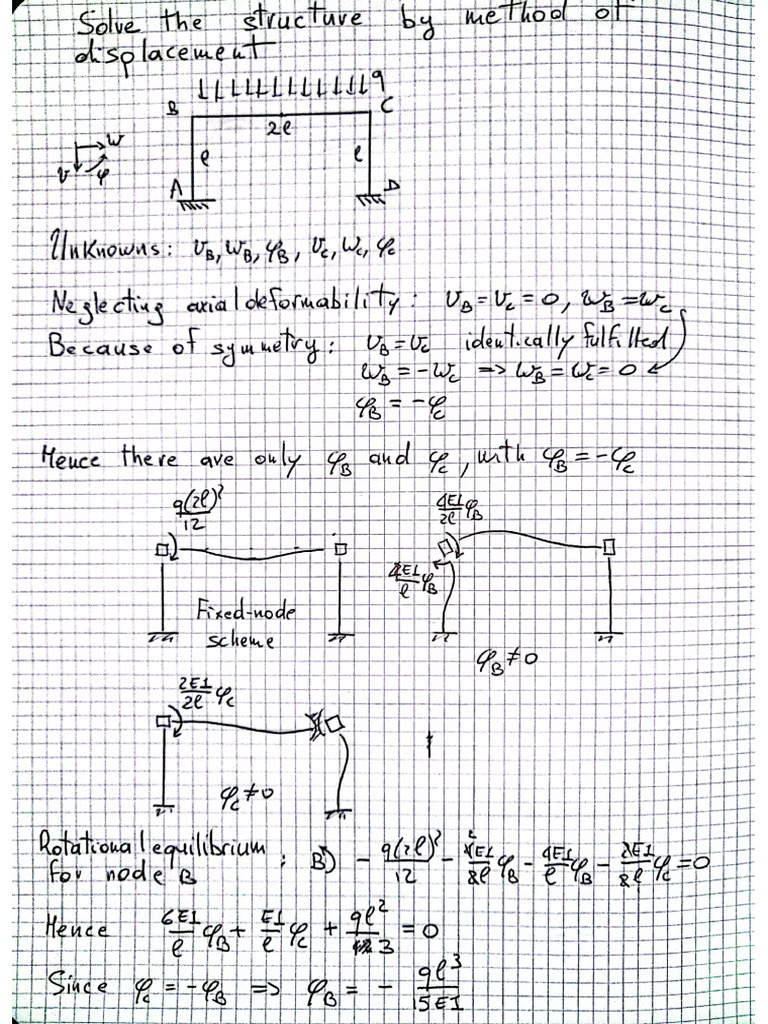 Solve the structure by method of
displacement
q
B C
2l
w
v φ
l l
A D
Unknowns: v_B, w_B, φ_B, v_C, w_C, φ_C
Neglecting axial deformability: v_B = v_C = 0, w_B = w_C
Because of symmetry: v_B = v_C identically fulfilled
w_B = -w_C => w_B = w_C = 0
φ_B = -φ_C
Hence there are only φ_B and φ_C, with φ_B = -φ_C
q(2l)²/12
4EI/2l φ_B
4EI/l φ_B
Fixed-node
scheme
φ_B ≠ 0
2EI/2l φ_C
φ_C ≠ 0
Rotational equilibrium
for node B : B) - q(2l)²/12 - 4EI/2l φ_B - 4EI/l φ_B - 2EI/2l φ_C = 0
Hence 6EI/l φ_B + EI/l φ_C + ql²/3 = 0
Since φ_C = -φ_B => φ_B = - ql³/15EI